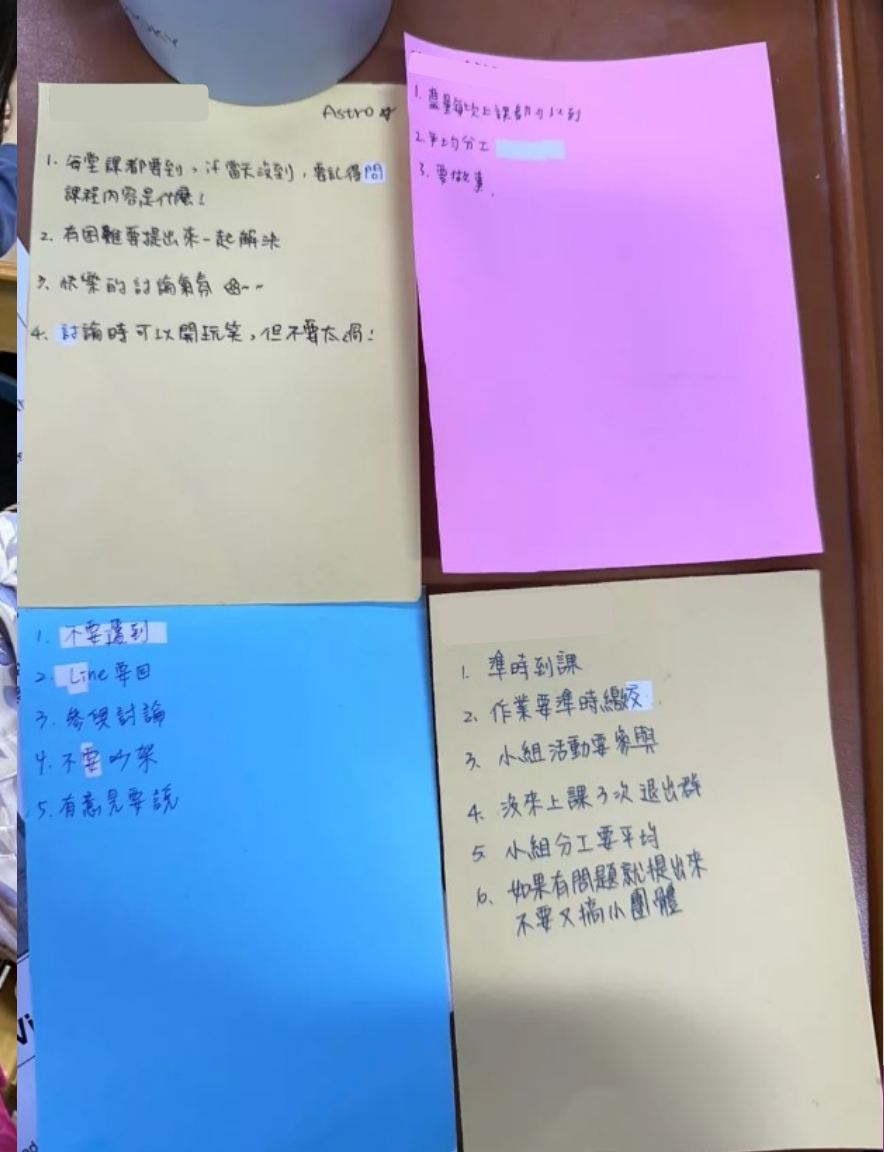 Astro
1. 每堂課都要到，if 當天沒到，要記得問
課程內容是什麼！
2. 有困難要提出來一起解決
3. 快樂的討論氣氛 ~~
4. 討論時可以開玩笑，但不要太過！
1. 盡量每次上課都可以到
2. 平均分工
3. 要做事.
1. 不要遲到
2. Line要回
3. 參與討論
4. 不要吵架
5. 有意見要說
1. 準時到課
2. 作業要準時繳交
3. 小組活動要參與
4. 沒來上課3次退出群
5. 小組分工要平均
6. 如果有問題就提出來
不要又搞小團體